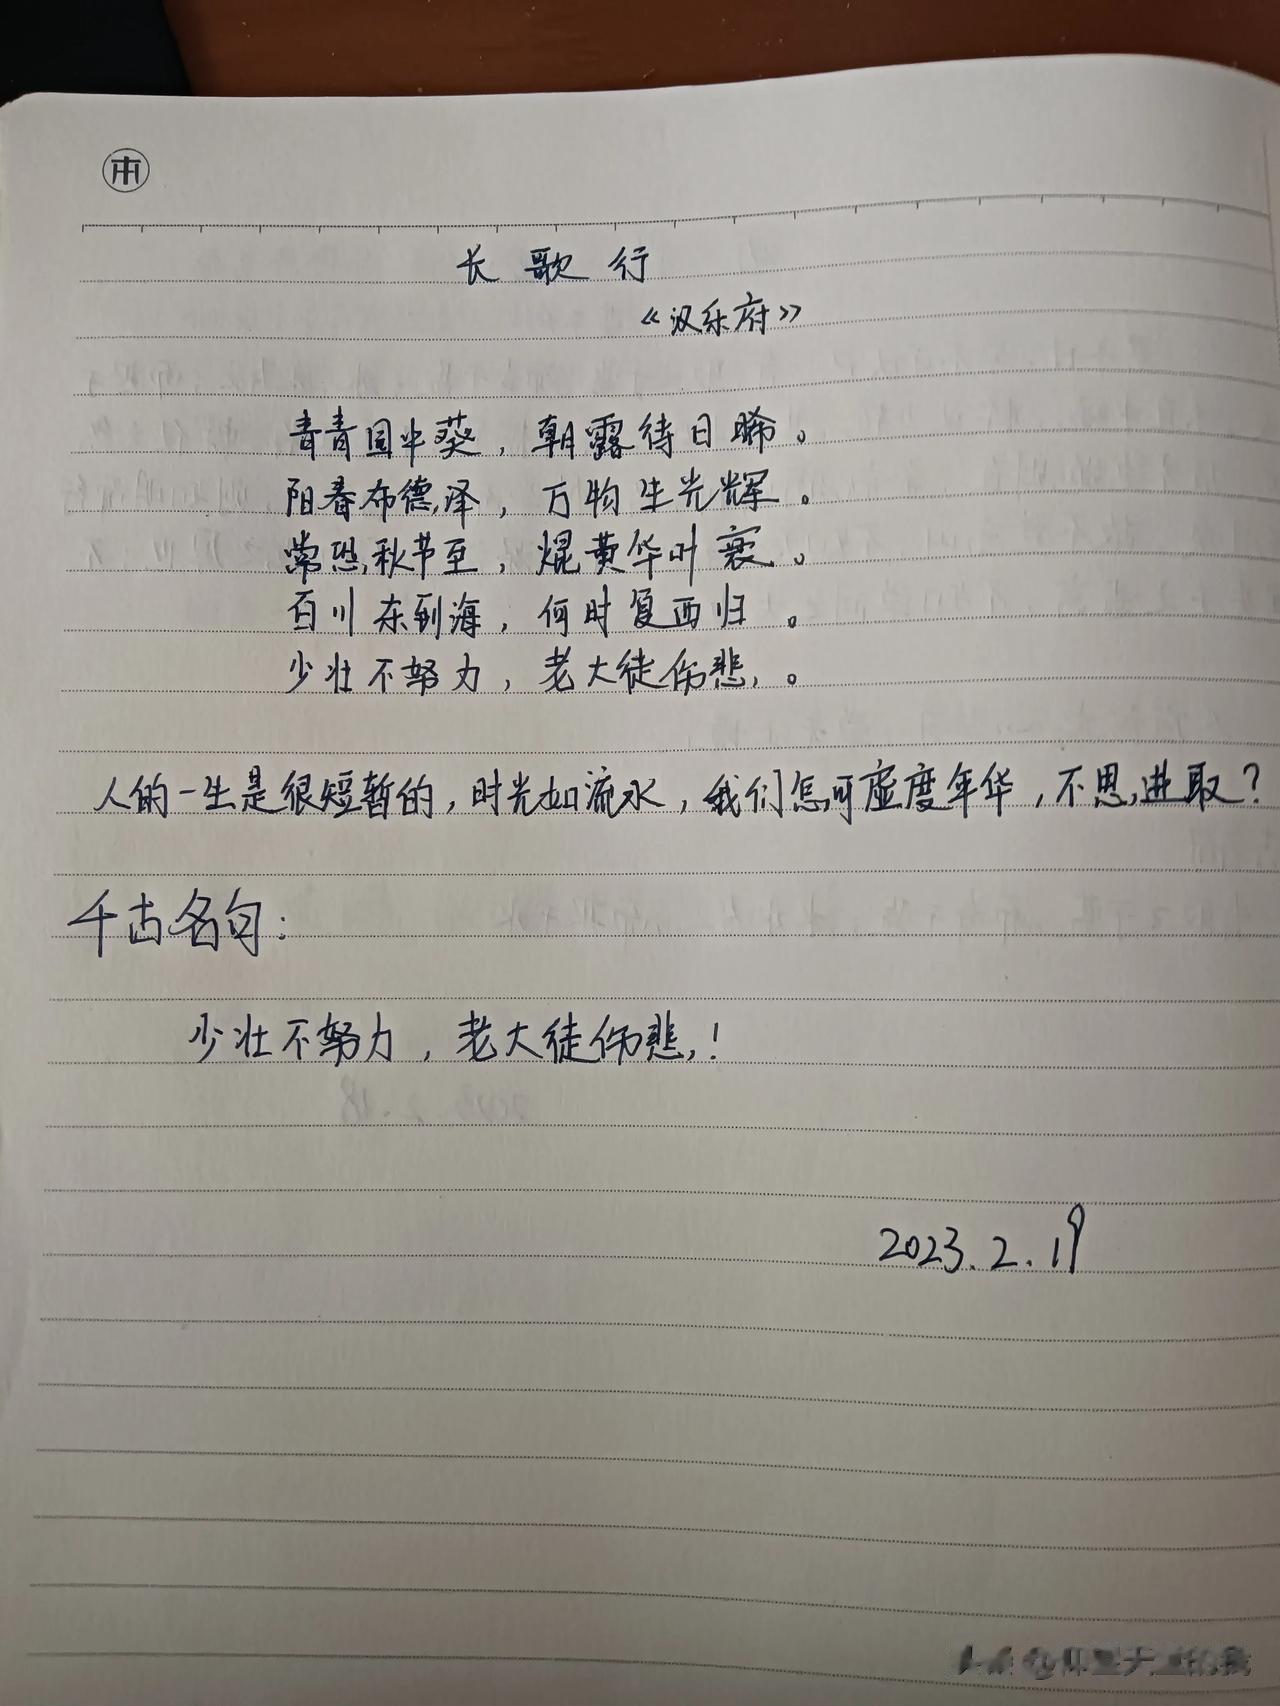 本
长歌行
《汉乐府》
青青园中葵，朝露待日晞。
阳春布德泽，万物生光辉。
常恐秋节至，焜黄华叶衰。
百川东到海，何时复西归。
少壮不努力，老大徒伤悲。
人的一生是很短暂的，时光如流水，我们怎可虚度年华，不思进取？
千古名句：
少壮不努力，老大徒伤悲！
2023.2.19
头条